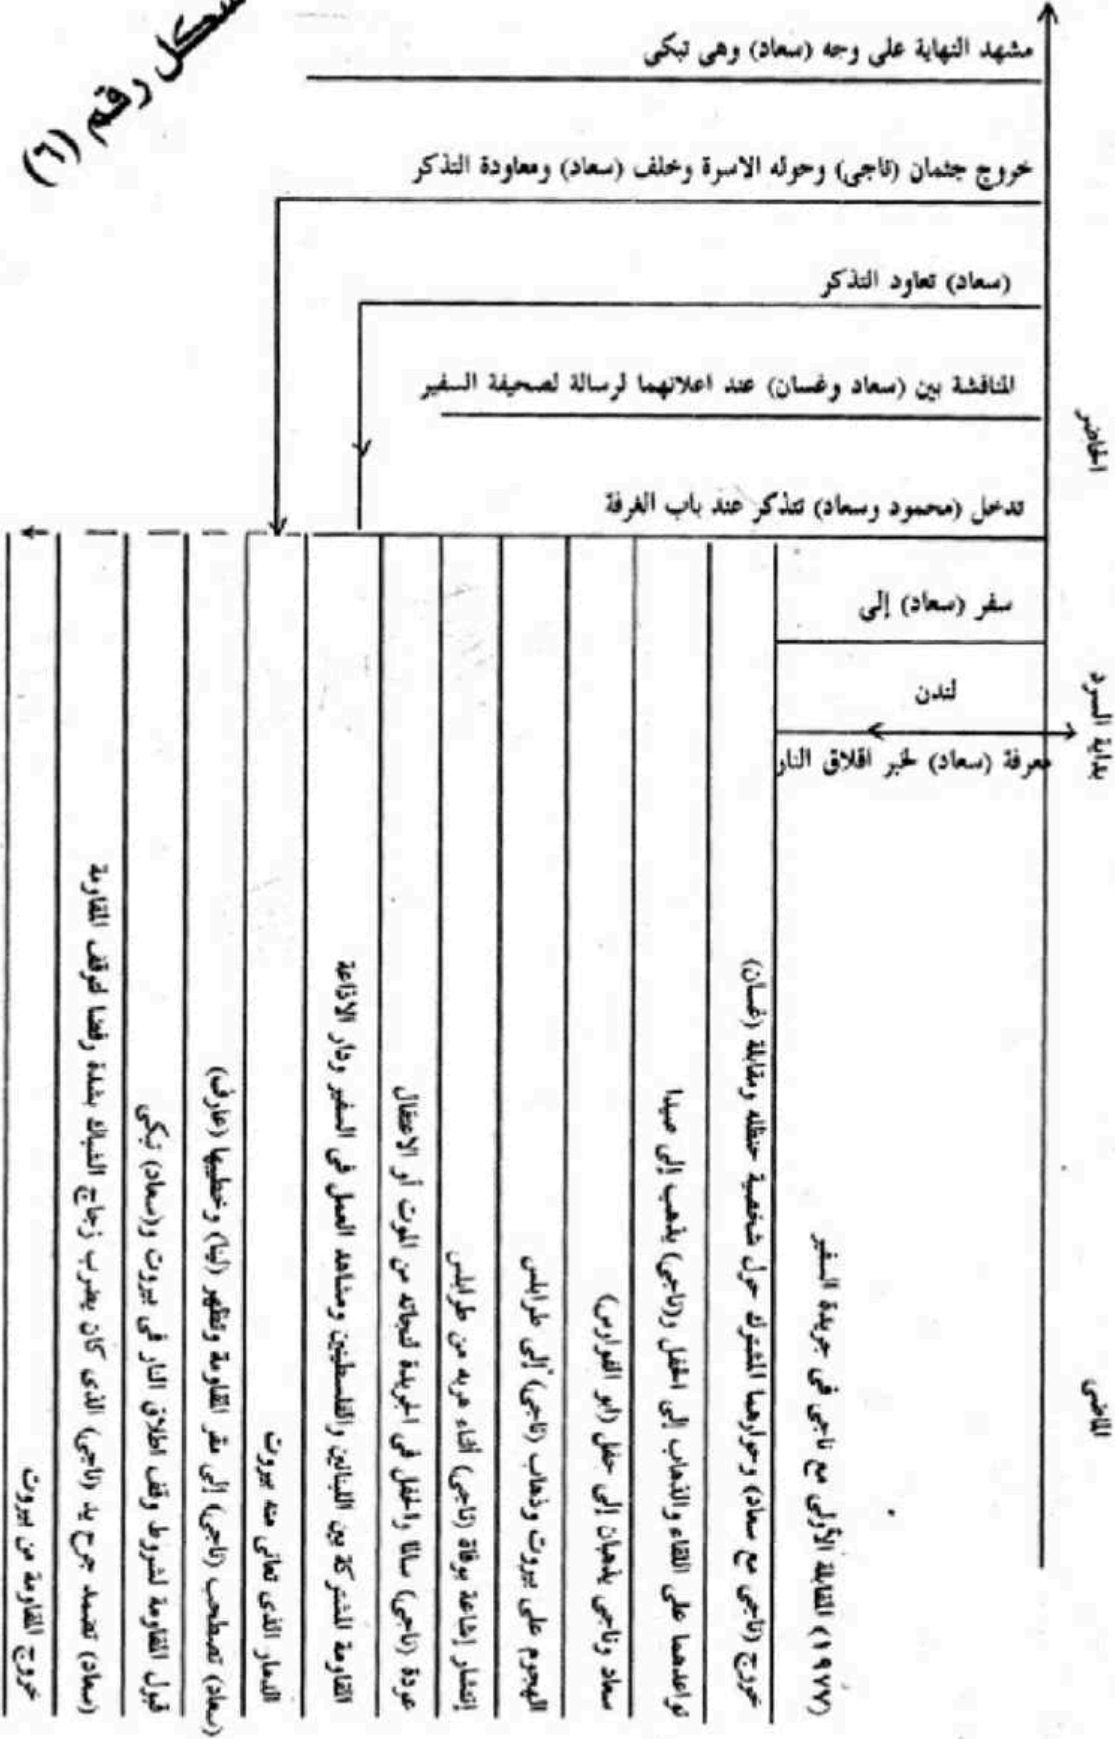 شكل رقم (٦)
مشهد النهاية على وجه (سعاد) وهى تبكى
خروج جثمان (ناجى) وحوله الاسرة وخلف (سعاد) ومعاودة التذكر
(سعاد) تعاود التذكر
المناقشة بين (سعاد وغسان) عند اعلانهما لرسالة لصحيفة السفير
تدخل (محمود وسعاد) تتذكر عند باب الغرفة
سفر (سعاد) إلى
لندن
معرفة (سعاد) لخبر اقلاق النار
الحاضر
بداية السرد
الماضى
(١٩٧٧) المقابلة الأولى مع ناجى فى جريدة السفير
خروج (ناجى مع سعاد) وحوارهما المشترك حول شخصية حنظله ومقابلة (غسان)
تواعدهما على اللقاء والذهاب إلى الحفل و(ناجى) يذهب إلى صيدا
سعاد وناجى يذهبان إلى حفل (ابو الفوارس)
الهجوم على بيروت وذهاب (ناجى) إلى طرابلس
إنتشار إشاعة بوفاة (ناجى) أثناء هربه من طرابلس
عودة (ناجى) سالما والحفل فى الجريدة لنجاته من الموت أو الاعتقال
المقاومة المشتركة بين اللبنانين والفلسطينين ومشاهد العمل فى السفير ودار الاذاعة
الدمار الذى تعانى منه بيروت
(سعاد) تصطحب (ناجى) إلى مقر المقاومة وتظهر (لينا) وخطيبها (عارف)
قبول المقاومة لشروط وقف اطلاق النار فى بيروت و(سعاد) تبكى
(سعاد) تضمد جرح يد (ناجى) الذى كان يضرب زجاج الشباك بشدة رفضا لموقف المقاومة
خروج المقاومة من بيروت